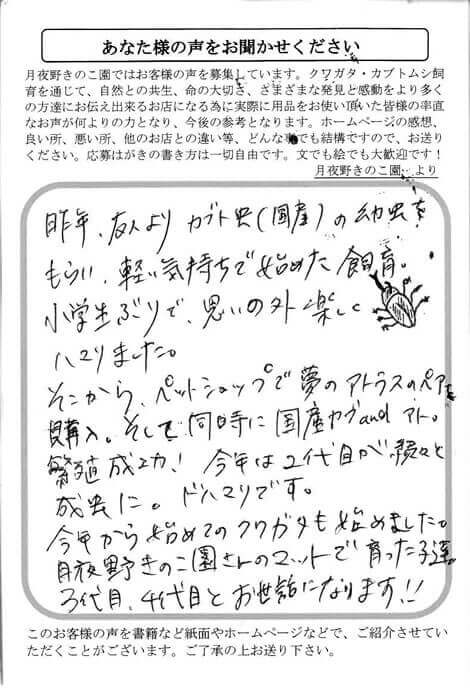 あなた様の声をお聞かせください
月夜野きのこ園ではお客様の声を募集しています。クワガタ・カブトムシ飼
育を通じて、自然との共生、命の大切さ、さまざまな発見と感動をより多く
の方達にお伝え出来るお店になる為に実際に用品をお使い頂いた皆様の率直
なお声が何よりの力となり、今後の参考となります。ホームページの感想、
良い所、悪い所、他のお店との違い等、どんな事でも結構ですので、お送り
ください。応募はがきの書き方は一切自由です。文でも絵でも大歓迎です！
月夜野きのこ園 より
昨年、友人より カブト虫(国産)の幼虫を
もらい、軽い気持ちで始めた飼育。
小学生ぶりで、思いの外 楽しく
ハマりました。
そこから、ペットショップで夢のアトラスのペアを
購入。そして同時に国産カブandアト。
繁殖成功! 今年は2代目が続々と
成虫に。ドハマリです。
今年から始めてのクワガタも始めました。
月夜野きのこ園さんのマットで育った子達。
3代目、4代目とお世話になります!!
このお客様の声を書籍など紙面やホームページなどで、ご紹介させてい
ただくことがございます。ご了承の上お送り下さい。